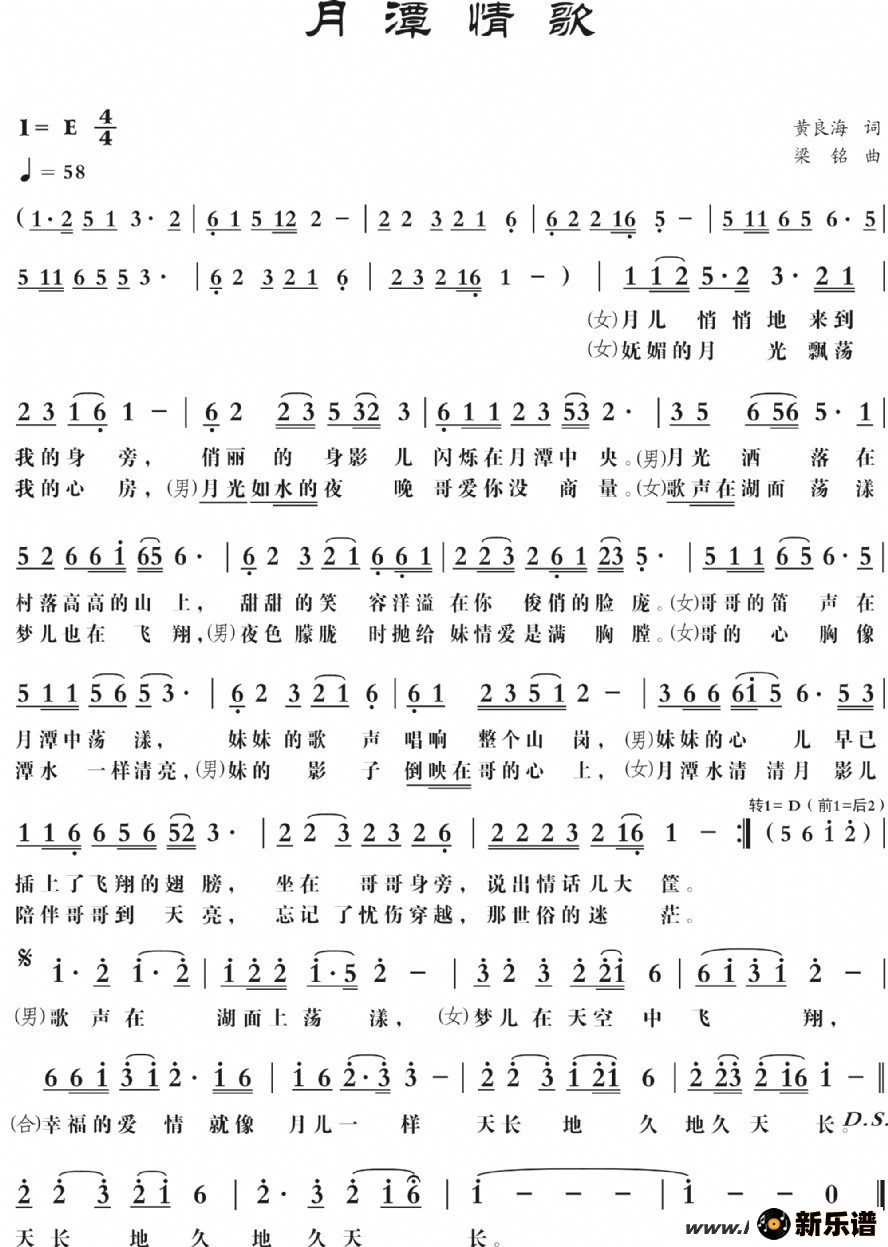 月潭情歌
1= E 4/4
黄良海 词
♩= 58
梁 铭 曲
(1·2 5 1 3· 2 | 6 1 5 12 2 - | 2 2 3 2 1 6 | 6 2 2 16 5 - | 5 11 6 5 6· 5 |
5 11 6 5 5 3· | 6 2 3 2 1 6 | 2 3 2 16 1 - ) | 1 1 2 5·2 3· 2 1 |
(女)月儿 悄悄地 来到
(女)妩媚的月 光飘荡
2 3 1 6 1 - | 6 2 2 3 5 32 3 | 6 1 1 2 3 53 2· | 3 5 6 56 5· 1 |
我的身 旁， 俏丽 的 身影 儿 闪烁在月潭中 央。(男)月光 洒 落在
我的心 房，(男)月光如水的夜 晚哥爱你没 商量。(女)歌声在湖面 荡漾
5 2 6 6 1 65 6· | 6 2 3 2 1 6 6 1 | 2 2 3 2 6 1 23 5· | 5 1 1 6 5 6· 5 |
村落高高的山 上， 甜甜 的笑 容洋溢 在你 俊俏的脸 庞。(女)哥哥的笛 声在
梦儿也在 飞翔，(男)夜色 朦胧 时抛给 妹情爱是满 胸膛。(女)哥的 心 胸像
5 1 1 5 6 5 3· | 6 2 3 2 1 6 | 6 1 2 3 5 1 2 - | 3 6 6 61 5 6· 5 3 |
月潭中荡 漾， 妹妹 的歌 声 唱响 整个山 岗， (男)妹妹的心 儿 早已
潭水 一样清亮，(男)妹的 影 子 倒映在哥的心 上， (女)月潭水清 清月 影儿
转1= D（前1=后2）
1 1 6 6 5 6 52 3· | 2 2 3 2 3 2 6 | 2 2 2 3 2 16 1 - :‖ (5 6 1 2) |
插上了飞翔的翅 膀， 坐在 哥哥身旁，说出情话儿大 筐。
陪伴哥哥到 天亮， 忘记 了忧伤穿越，那世俗的迷 茫。
𝄋 1· 2 1· 2 | 1 2 2 1·5 2 - | 3 2 3 2 21 6 | 6 1 3 1 2 - |
(男)歌 声 在 湖面上荡 漾， (女)梦儿在天空 中 飞 翔，
6 6 1 3 1 2· 1 6 | 1 6 2·3 3 - | 2 2 3 1 21 6 | 2 23 2 16 1 - ‖
(合)幸福的爱 情 就像 月儿一 样 天长 地 久 地久 天 长。D.S.
2 2 3 2 1 6 | 2· 3 2 1 6 | 1 - - - | 1 - - 0 ‖
天 长 地 久 地 久 天 长。
www.
新乐谱